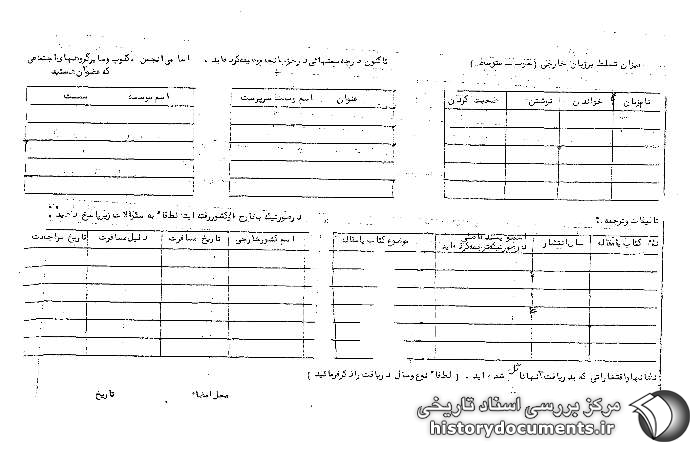 میزان تسلط بر زبان خارجی (
نام زبان خواندن نوشتن صحبت کردن
تاکنون در چه سمتهائی در حزب
عنوان اسم و سمت سرپرست
اسامی انجمن ، کلوب و سایر گروههای اجتماعی
که عضو آن هستید
اسم موسسه سمت
تالیفات و ترجمه :
نام کتاب یا مقاله سال انتشار
در صورتیکه ترجمه کرده اید
موضوع کتاب یا مقاله
در صورتیکه بخارج از کشور رفته اید لطفا" به سئوالات زیر پاسخ دهید :
اسم کشور خارجی تاریخ مسافرت دلیل مسافرت تاریخ مراجعت
نشانها و افتخاراتی که بدریافت آنها نائل شده اید . ( لطفا" نوع و سال دریافت را ذکر فرمائید )
محل امضاء تاریخ
مرکز بررسی اسناد تاریخی
historydocuments.ir